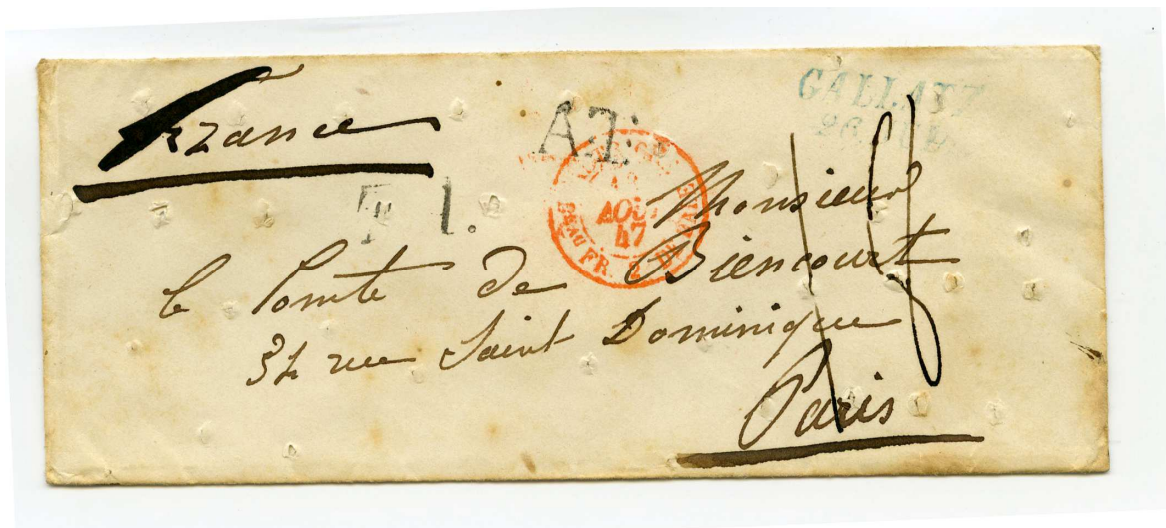 France
A.T.
GALLATZ
T 1.
AOUT
47
Monsieur
le Comte de Biencourt
31 rue Saint Dominique
Paris